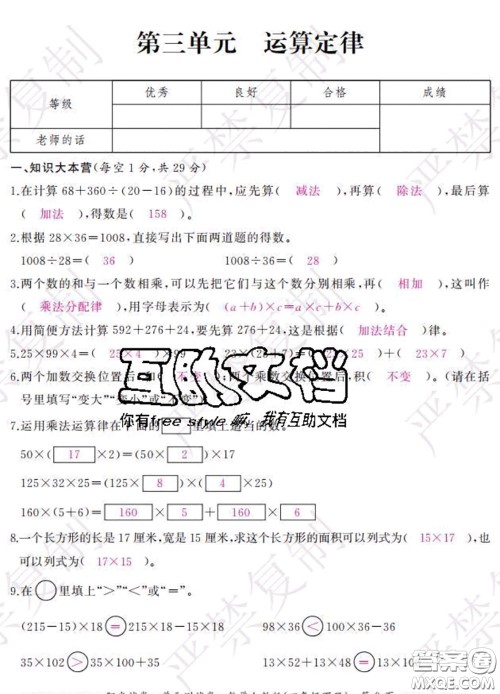 第三单元 运算定律
等级 优秀 良好 合格 成绩
老师的话
一、知识大本营(每空1分,共29分)
1.在计算68+360÷(20-16)的过程中,应先算( 减法 ),再算( 除法 ),最后算
( 加法 ),得数是( 158 )。
2.根据28×36=1008,直接写出下面两道题的得数。
1008÷28=( 36 ) 1008÷36=( 28 )
3.两个数的和与一个数相乘,可以先把它们与这个数分别相乘,再( 相加 ),这叫作
( 乘法分配律 ),用字母表示为( (a+b)×c=a×c+b×c )。
4.用简便方法计算592+276+24,要先算276+24,这是根据( 加法结合 )律。
5.25×99×4=( 25×4 )×99 )+( 23×7 )
6.两个加数交换位置后,和( 不变 );两个乘数交换位置后,积( 不变 )。(请在括
号里填写“变大”“变小”或“不变”)
7.运用乘法运算律在下面的 里填上适当的数。
50×( 17 ×2)=(50× 2 )×17
125×32×25=(125× 8 )×( 4 ×25)
160×(5+6)= 160 × 5 + 160 ×6
8.一个长方形的长是17厘米,宽是15厘米,求这个长方形的面积可以列式为( 15×17 ),也
可以列式为( 17×15 )。
9.在○里填上“>”“<”或“=”。
(215-15)×18 = 215×18-15×18 98×36 < 100×36-36
35×102 > 35×100+35 13×52+13×48
互助文档
你有free style 嘛,我有互助文档
严禁复制
答案圈
MXQE.COM